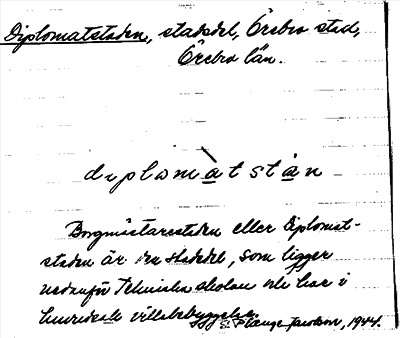 Diplomatstaden, stadsdel, Örebro stad,
Örebro län.
diplomàtstan
Borgmästarestaden eller Diplomat-
staden är den stadsdel, som ligger
nedanför Tekniska skolan och har i
huvudsak villabebyggelse.
Jacobson, 1944.